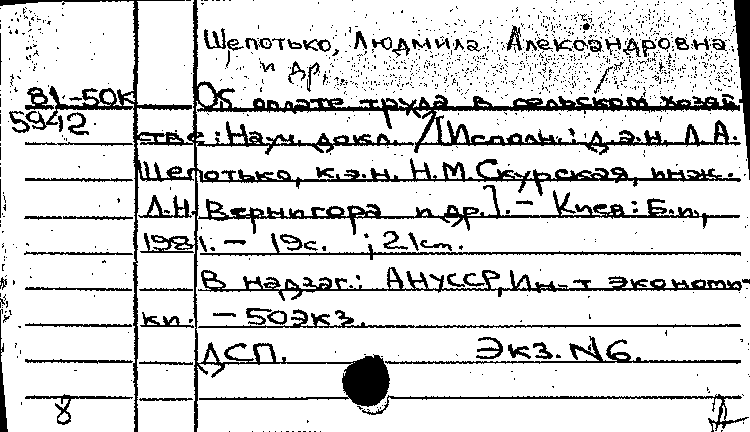 Щепотько, Людмила Александровна
и др.
81-50К Об оплате труда в сельском хозяй
5942 стве: Научн. докл. / [Исполн.: д.э.н. Л.А.
Щепотько, к.э.н. Н.М. Скурская, инж.
Л.Н. Вернигора и др.]. – Киев: Б.и.,
1981. – 19с. ; 21см.
В надзаг.: АНУССР, Ин-т экономи-
ки. – 50экз.
ДСП. Экз. N6.
8